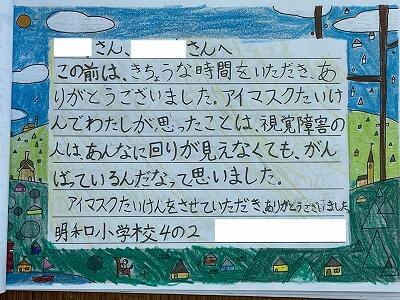 さん、さんへ
この前は、きちょうな時間をいただき、あ
りがとうございました。アイマスクたいけ
んでわたしが思ったことは、視覚障害の
人は、あんなに回りが見えなくても、がん
ばっているんだなって思いました。
アイマスクたいけんをさせていただき、ありがとうございました
明和小学校4の2